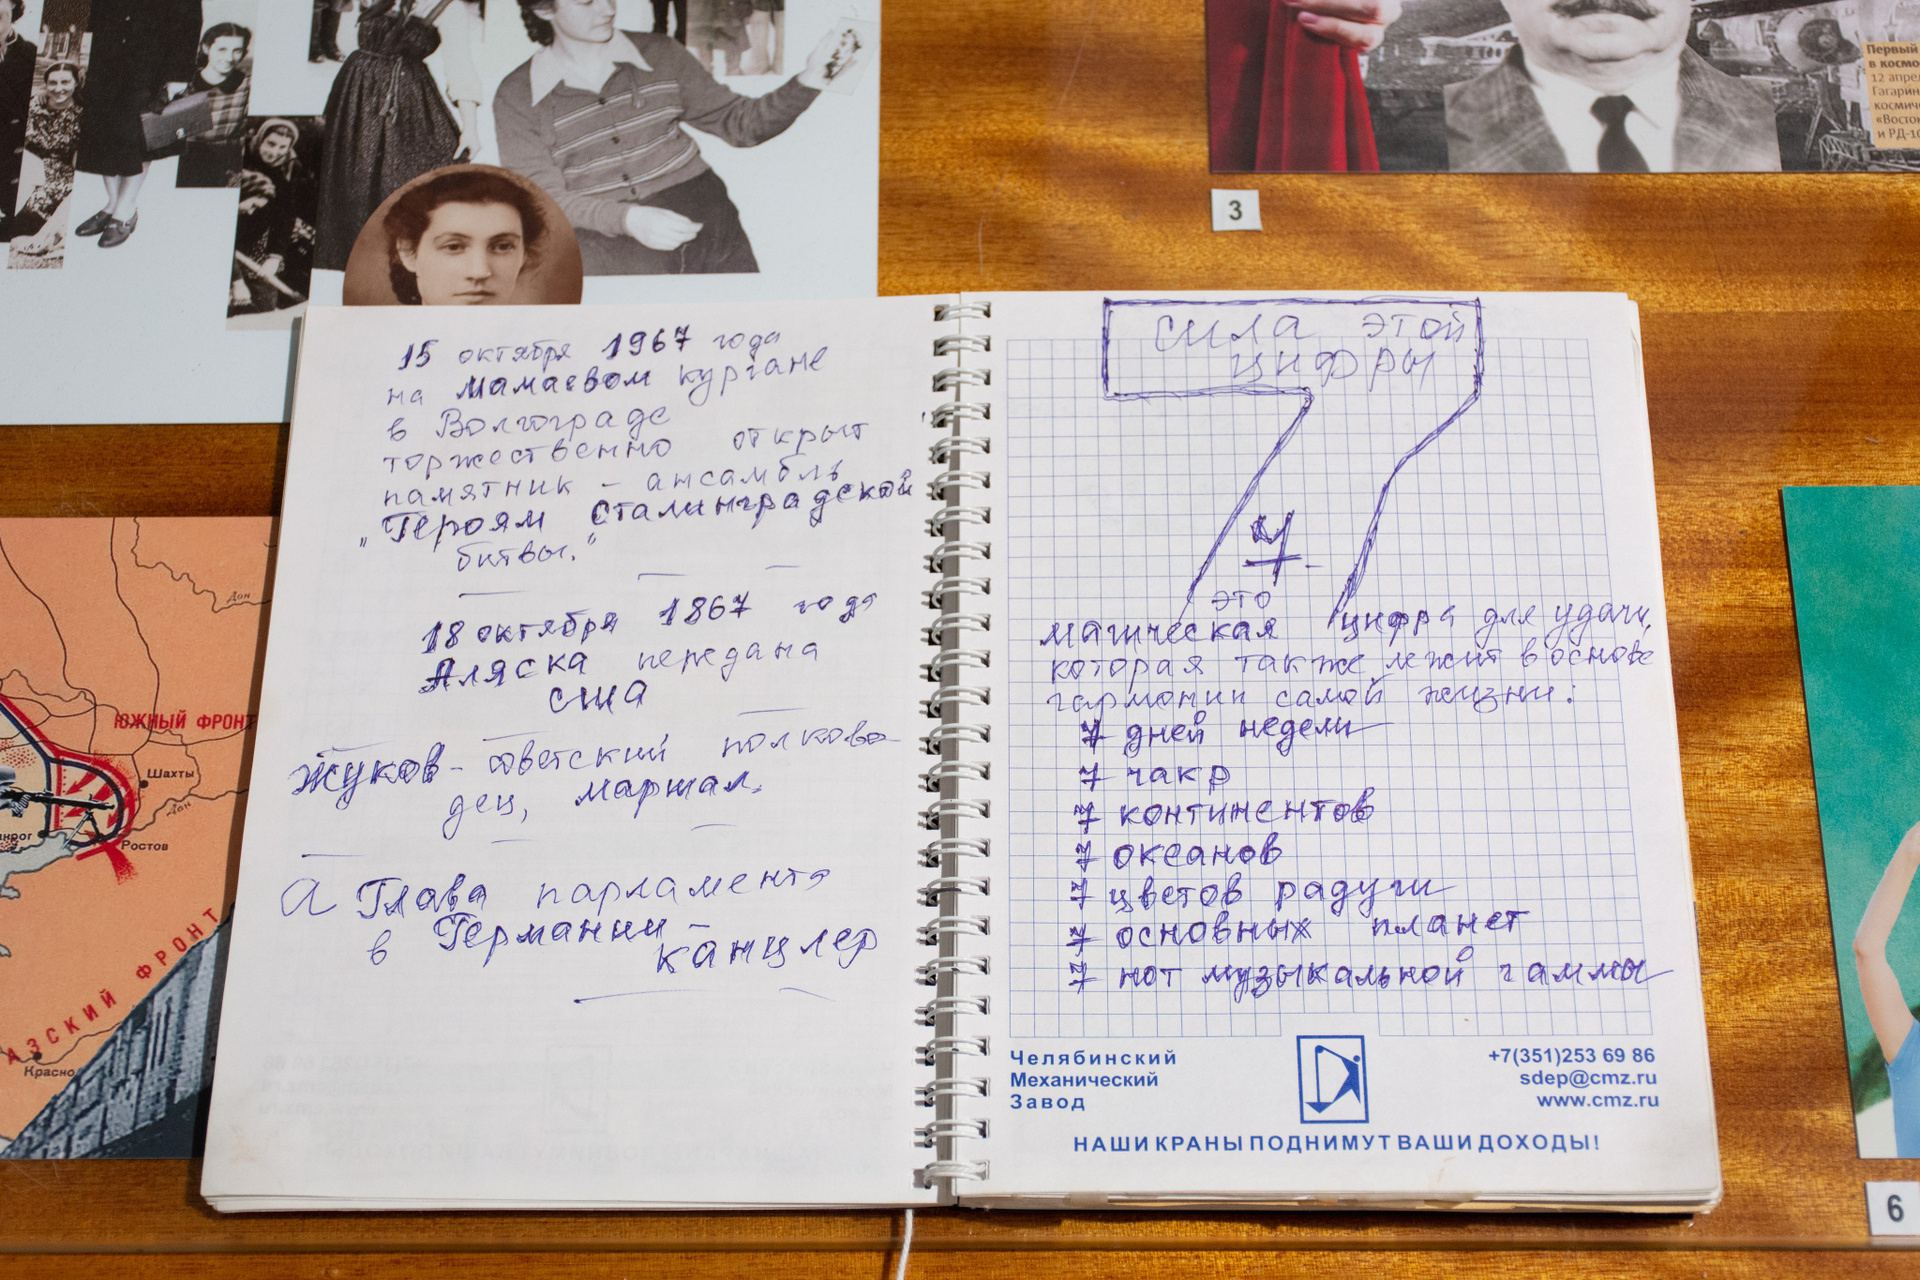 Первый
в космо
12 апрел
Гагарин
космиче
«Восток
и РД-10
3
15 октября 1967 года
на Мамаевом кургане
в Волгограде
торжественно открыт
памятник - ансамбль
"Героям Сталинградской
битвы."
18 октября 1867 года
Аляска передана
США
Жуков - советский полково-
дец, маршал.
А Глава парламента
в Германии -
канцлер
сила этой
цифры
7
это
магическая цифра для удачи,
которая также лежит в основе
гармонии самой жизни:
7 дней недели
7 чакр
7 континентов
7 океанов
7 цветов радуги
7 основных планет
7 нот музыкальной гаммы
Челябинский
Механический
Завод
+7(351)253 69 86
sdep@cmz.ru
www.cmz.ru
НАШИ КРАНЫ ПОДНИМУТ ВАШИ ДОХОДЫ!
Дон
ЮЖНЫЙ ФРОНТ
Шахты
Дон
нрог
Ростов
АЗСКИЙ ФРОНТ
Красно
6